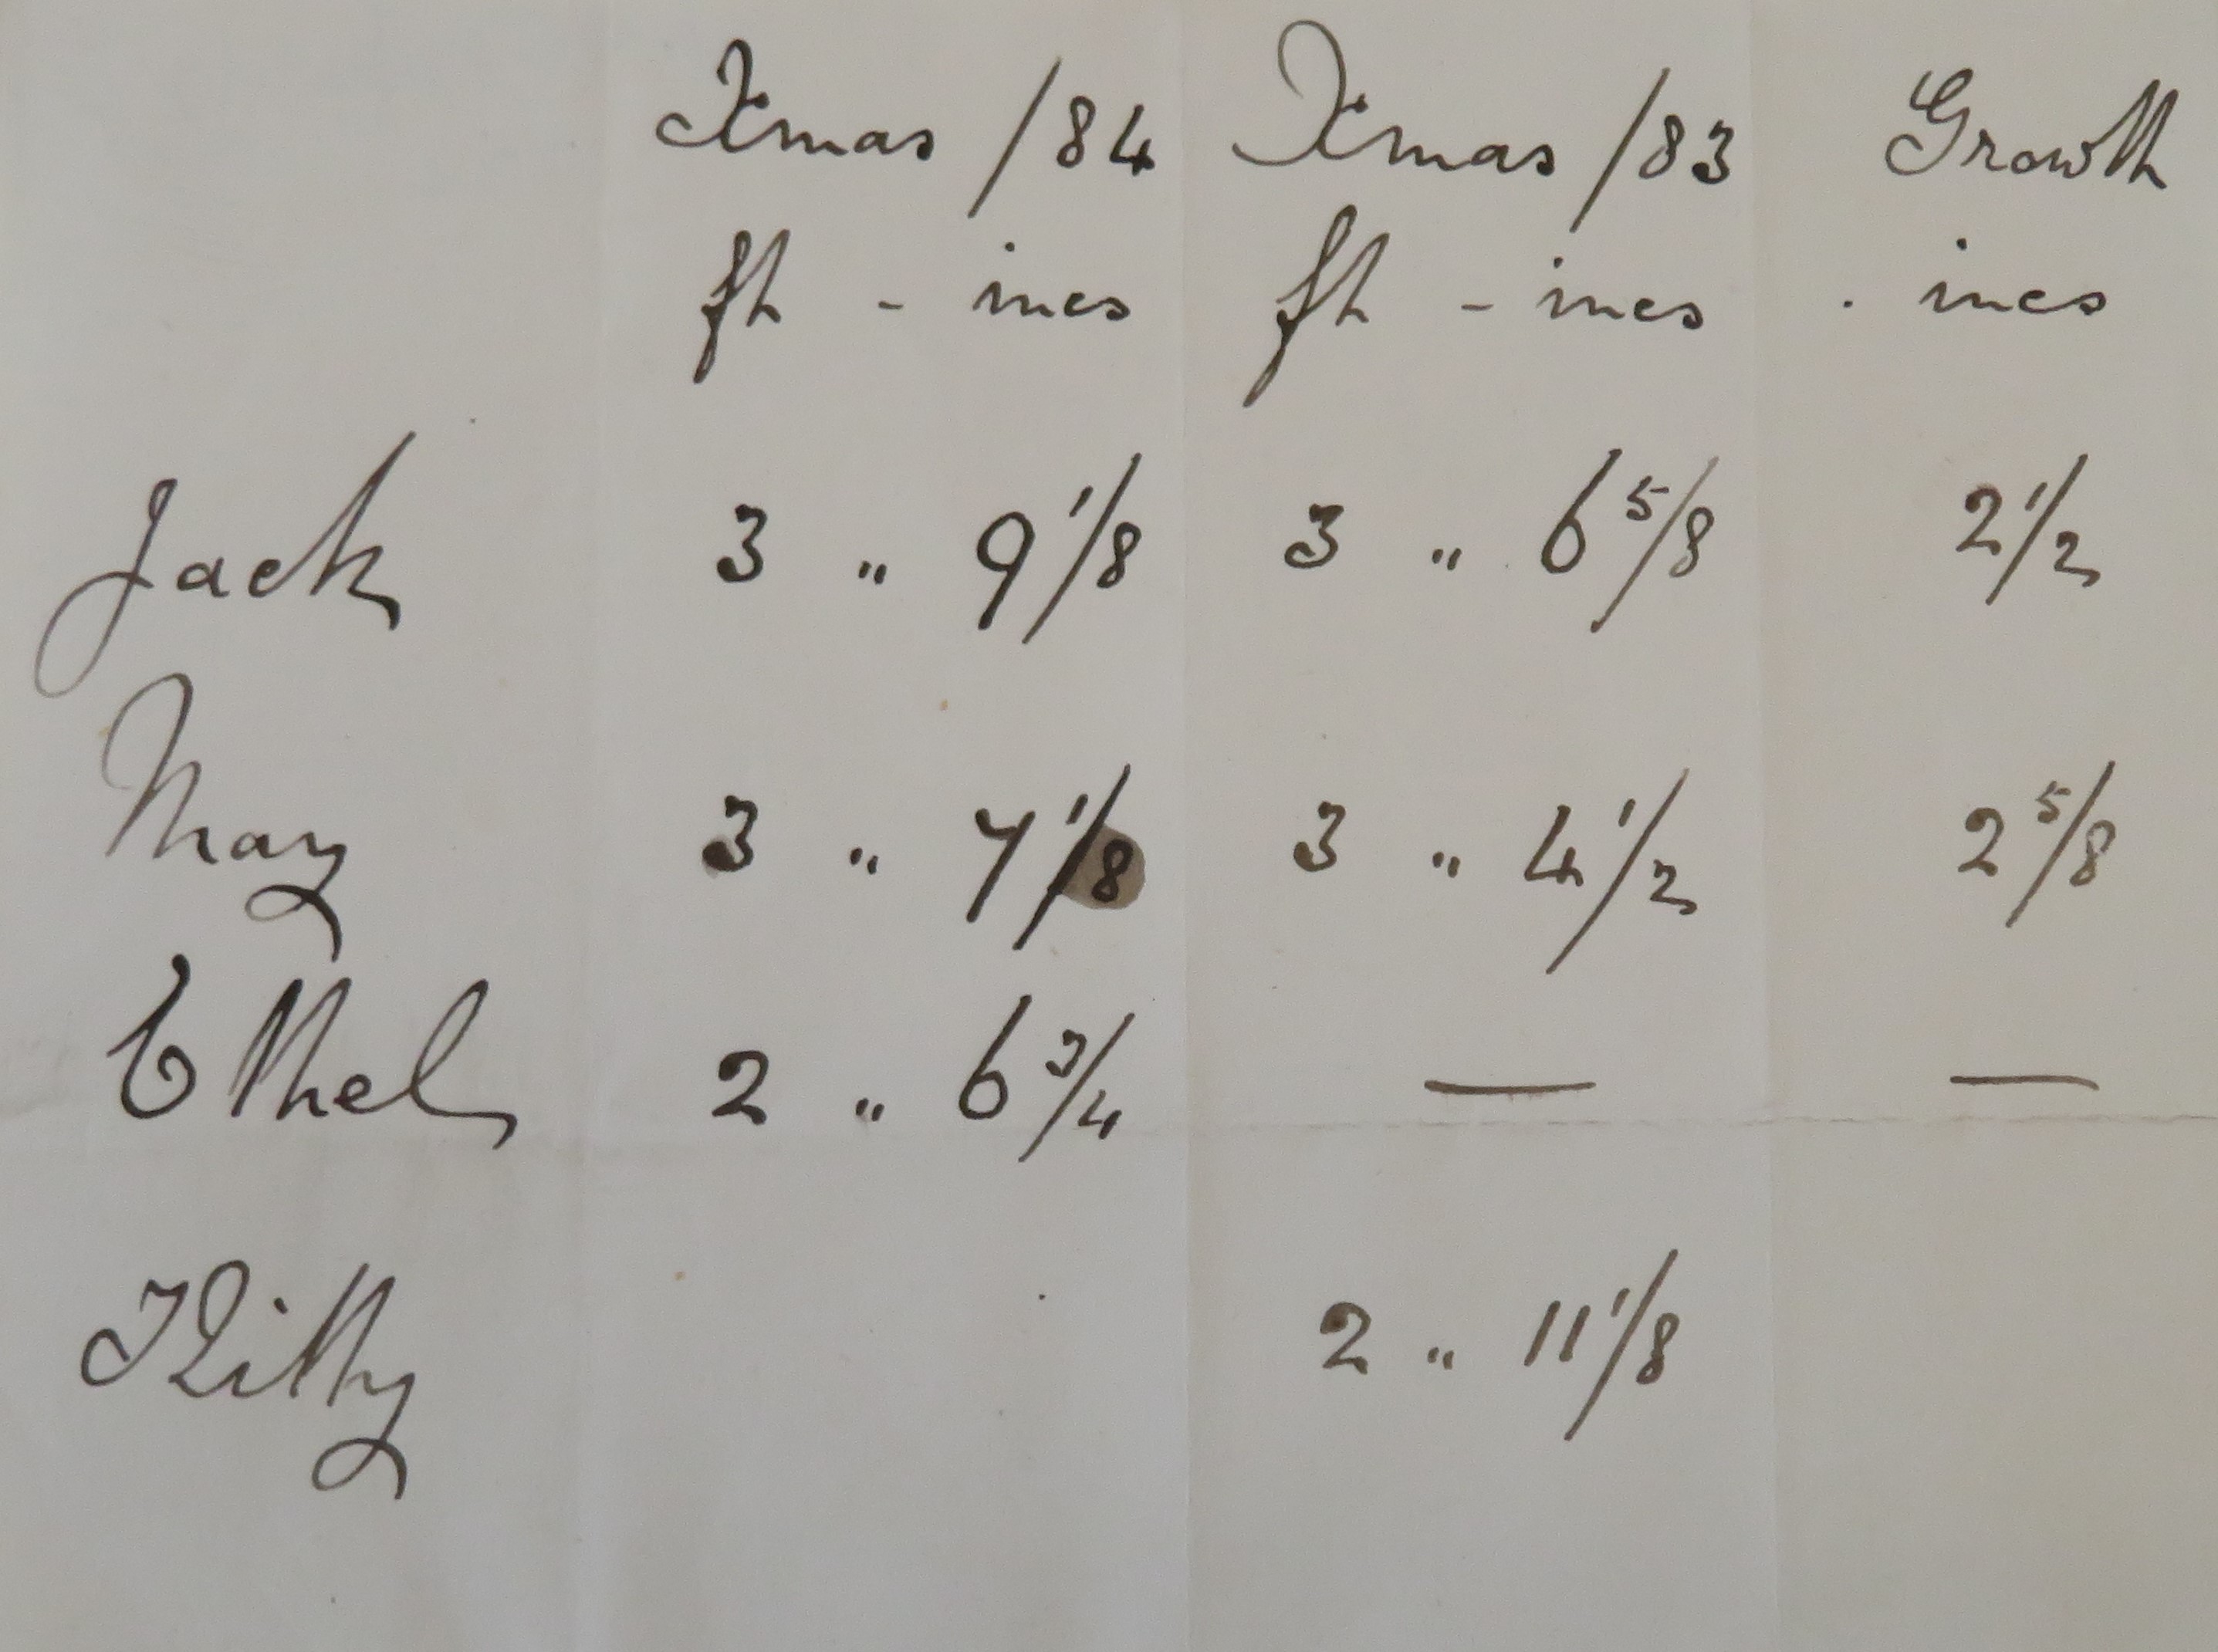 Xmas /84 Xmas /83 Growth
ft - incs ft - incs . incs
Jack 3 " 9 1/8 3 " 6 5/8 2 1/2
May 3 " 7 1/8 3 " 4 1/2 2 5/8
Ethel 2 " 6 3/4 — —
Kitty 2 " 11 1/8